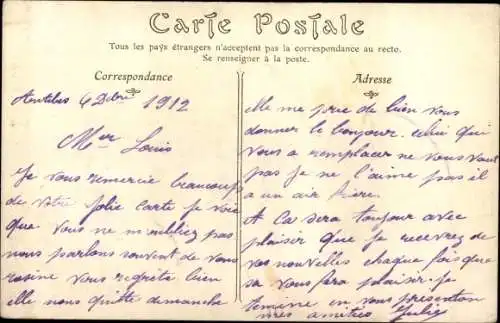 Carte Postale
Tous les pays étrangers n'acceptent pas la correspondance au recto.
Se renseigner à la poste.
Correspondance
Adresse
Antibes 4 Dbre 1912
Mer Louis
Je vous remercie beaucoup
de votre jolie carte je vois
que vous ne m'oubliez pas
nous parlons souvent de vous
rosine vous regrète bien
elle nous quitte demanche
Elle me prie de bien vous
donner le bonjour. celui qui
vous a remplacer ne vous vaut
pas je ne l'aime pas il
a un air
A Ca sera toujour avec
plaisir que je recevrez de
vos nouvelles chaque fois que
sa vous fera plaisir. je
termine en vous présenton
mes amitiés Julie